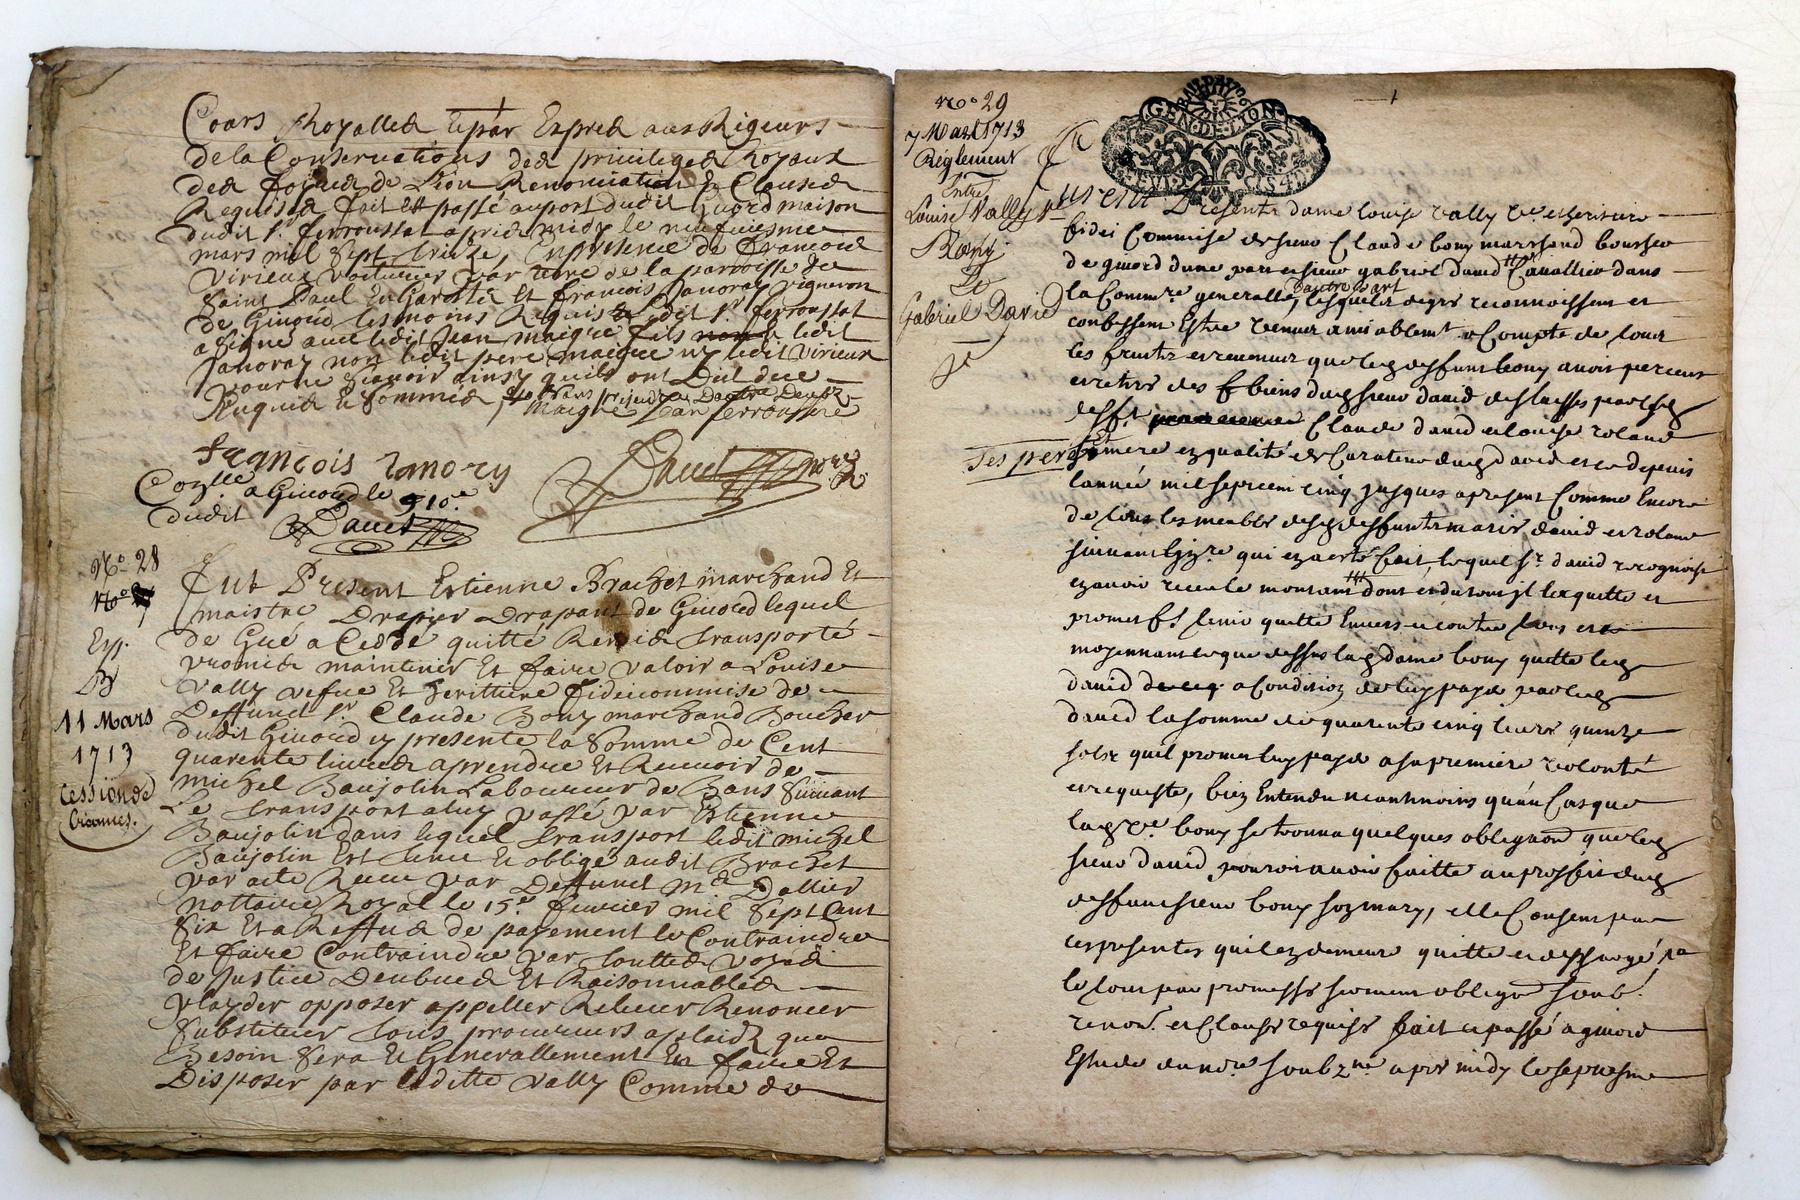 Cours Royalles et par Exprès aux Rigeurs
de la Conservations des privileges Royaux
des foires de Lion Renonciation et Clauses
Requises fait et passé au port dudit Givord maison
dudit Sr ferroussat apries midy le neufiesme
mars mil sept treize, En presence de francois
Virieux voiturier par terre de la parroisse de
Saint Paul En Jarestz Et francois Janoray vigneron
de Givord tesmoins Requis ledit Sr ferroussat
a signé avec ledit Jean maigre fils ledit
Janoray non ledit pere maigre ny ledit virieux
pour ne scavoir ainsy quils ont Dict de ce
Enquis et sommés, sans prejudice Dautre Deubz
maigre Jean ferroussat
françois Janory
Conllé a Givord le 10e
dudit
Davet
No 28
Esp.
11 Mars
1713
Cession de
Creances.
fut Present Estienne Brachet marchand Et
maistre Drapier Drapant de Givord lequel
de Gré a Ceddé quitté Remis transporté
promis maintenir Et faire valoir a Louise
Vally vefue Et heritiere fideicommise de
Deffunct Sr Claude Bony marchand Boucher
dudit Givord cy presente la somme de Cent
quarente livres a prendre Et Recevoir de
michel Baujolin Laboureur de Bans suivant
Le transport a luy passé par Estienne
Baujolin dans lequel transport ledit michel
Baujolin Est tenu Et obligé audit Brachet
par acte Receu par Deffunct Me Dallier
nottaire Royal le 15e fevrier mil sept Cent
six Et a Reffus de payement le Contraindre
Et faire Contraindre par touttes voyes
de Justice Deubues Et Raisonnables
playder opposer appeller Relever Renoncer
substituer tous procureurs a plaidz que
Besoin sera Et Generallement En faire Et
Disposer par laditte vally Comme de
No 29
7 Mars 1713
Reglement
Entre
Louise Vally ve
Bony
Et
Gabriel David
GEN·DE·LION
furent Presents dame louise vally ve et heritiere
fidei Commise de sieur Claude bony marchand boucher
de givord dune part et sieur gabriel david Cavallier dans
la Commre generalle, dautre part lesquels de gré reconnoissent et
confessent Estre venus amiablemt a Compte de tous
les fruits et revenus que led deffunt bony avoit perceus
et retirés des biens dud sieur david delaissés par led
defft Claude david et louise roland
ses pere et mere en qualité de Curateur dud david et ce depuis
lannée mil sept cent cinq jusques a present Comme Encore
de tous les meubles desd deffunts mariés david et roland
suivant linvre qui en a esté fait, lequel Sr david recognoist
en avoir receu le montant dont et du tout il lacquitte et
promet fe tenir quitte Envers et contre tous et
moyennant ce que dessus lad dame bony quitte led
david a Condition de luy payé par led
david la somme de quarente cinq livres quinze
sols quil promet luy payé a sa premiere volonté
et requeste, bien Entendu neantmoins quau Cas que
lad ve bony se trouva quelques obligaon que led
sieur david pourroit avoir faitte au proffit dud
deffunt sieur bony son mary, elle Consent par
ces presentes quil en demeure quitte et deschargé,
le tout par promesse serment obligaon soub.
renon. et Clauses requises fait et passé a givord
Estude du nore soubzné apres midy le septiesme